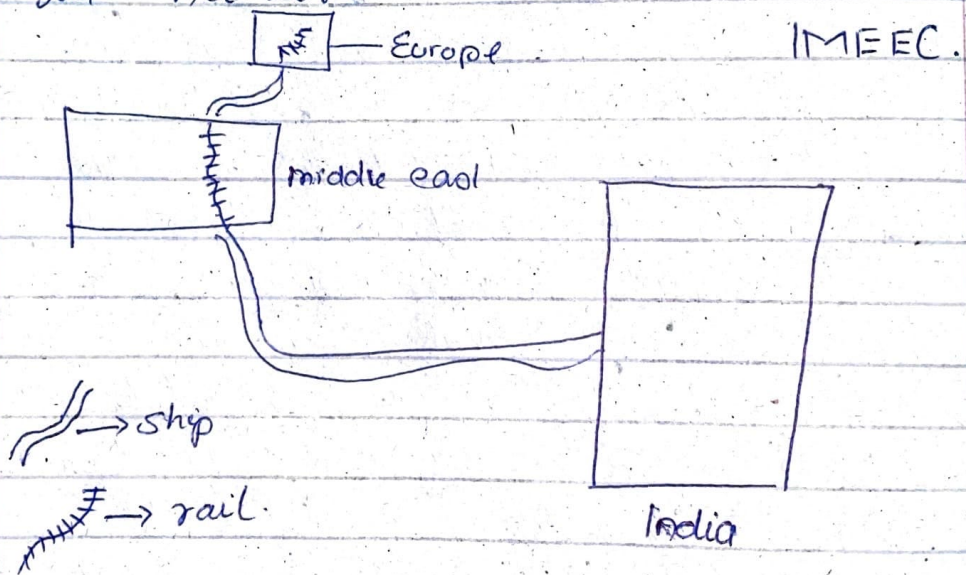 Europe
IMEEC.
middle east
ship
rail.
India